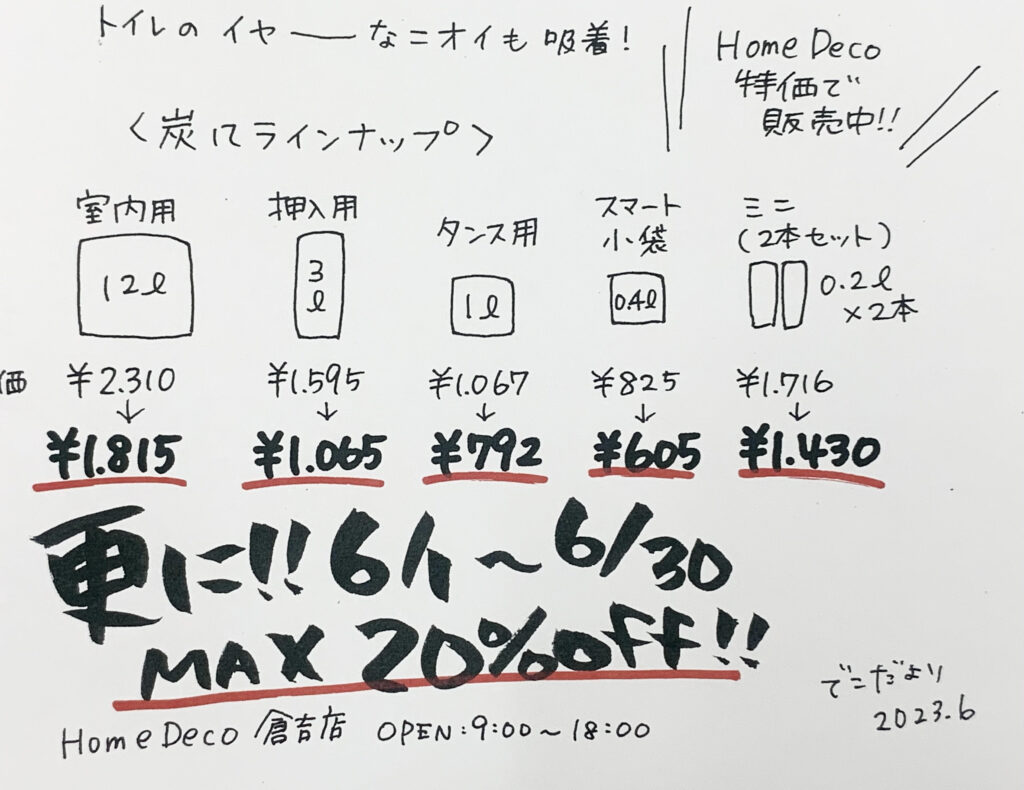 トイレのイヤーなニオイも吸着!
Home Deco
特価で
販売中!!
〈炭八ラインナップ〉
室内用
12ℓ
押入用
3
ℓ
タンス用
1ℓ
スマート
小袋
0.4ℓ
ミニ
(2本セット)
0.2ℓ
×2本
価 ¥2.310 ¥1.595 ¥1.067 ¥825 ¥1.716
↓ ↓ ↓ ↓ ↓
¥1.815 ¥1.065 ¥792 ¥605 ¥1.430
更に!!6/1〜6/30
MAX 20%OFF!!
でこだより
2023.6
Home Deco 倉吉店 OPEN:9:00〜18:00